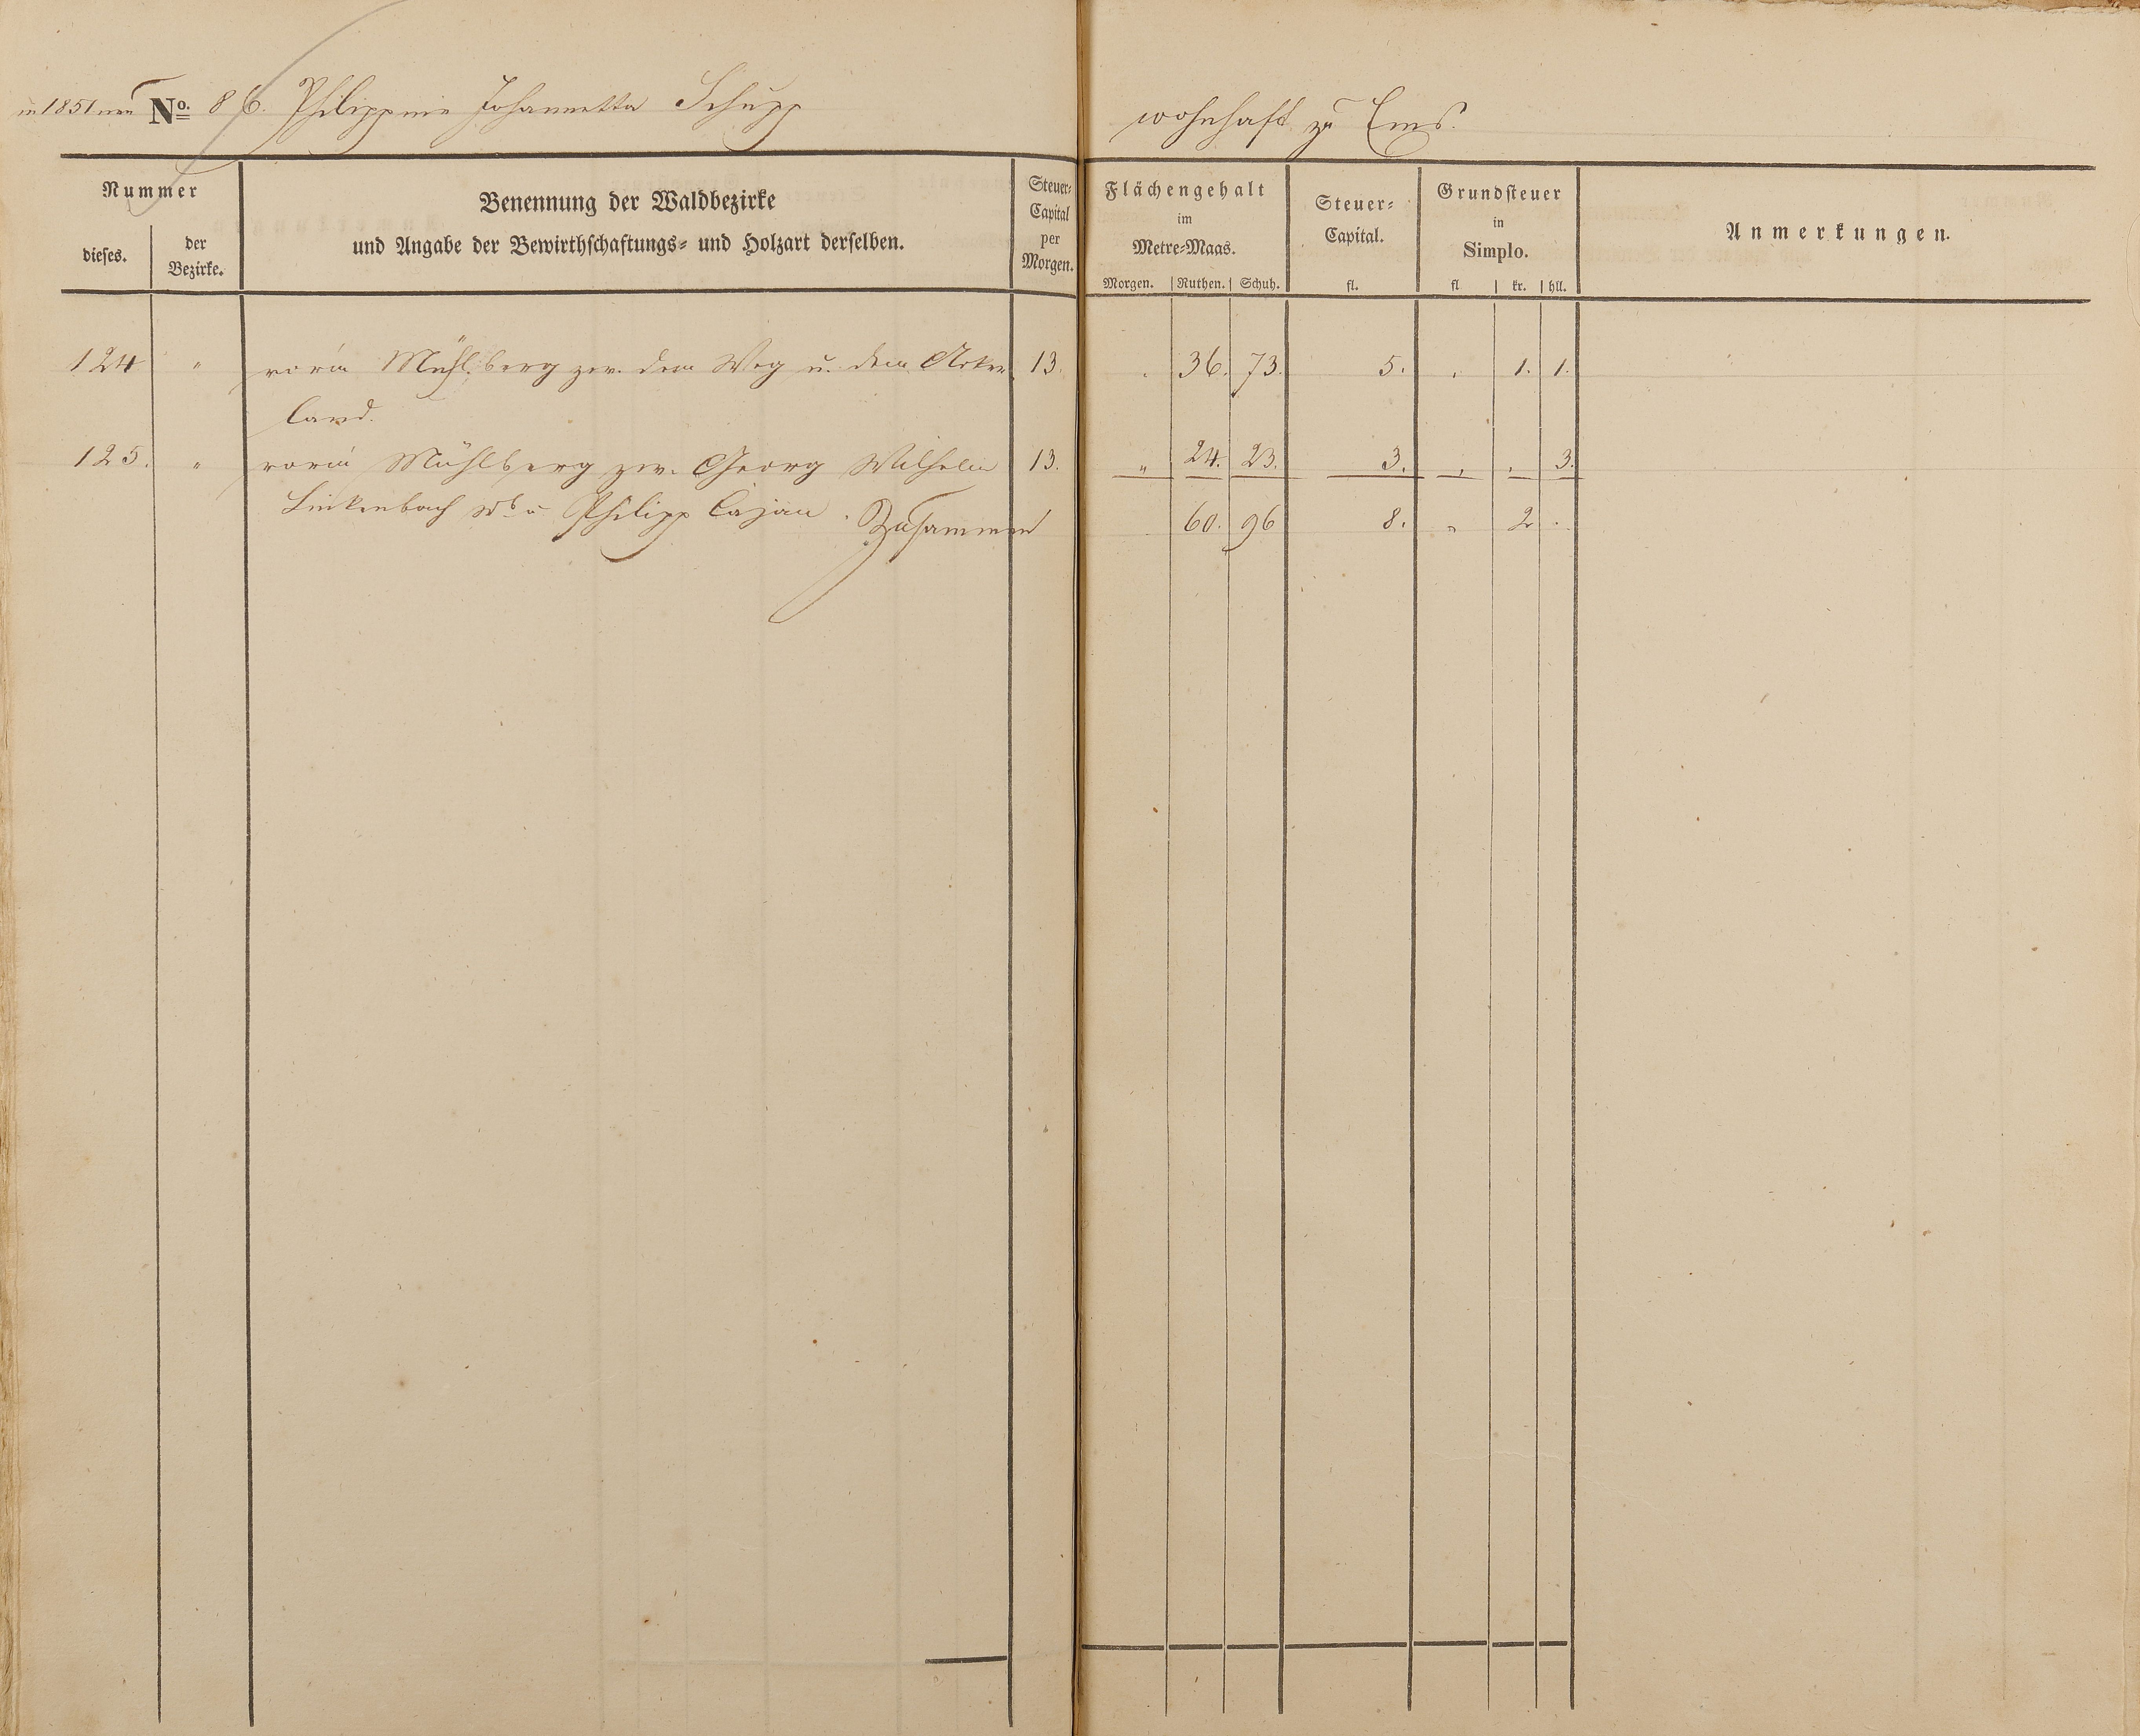 in 1851 neu No. 86. Philippine Johannetta Schupp wohnhaft zu Ems.
Nummer
dieses.
der Bezirke.
Benennung der Waldbezirke
und Angabe der Bewirthschaftungs- und Holzart derselben.
Steuer-
Capital
per
Morgen.
Flächengehalt
im
Metre-Maas.
Morgen. Ruthen. Schuh.
Steuer-
Capital.
fl.
Grundsteuer
in
Simplo.
fl kr. hll.
Anmerkungen.
124 " vorm Mühlberg zw. dem Weg u. dem Acker 13. . 36. 73. 5. . 1. 1.
land.
125. " vorm Mühlberg zw. Georg Wilhelm 13. " 24. 23. 3. . . 3.
Linkenbach u Philipp Cajan. Zusammen 60. 96 8. " 2 .